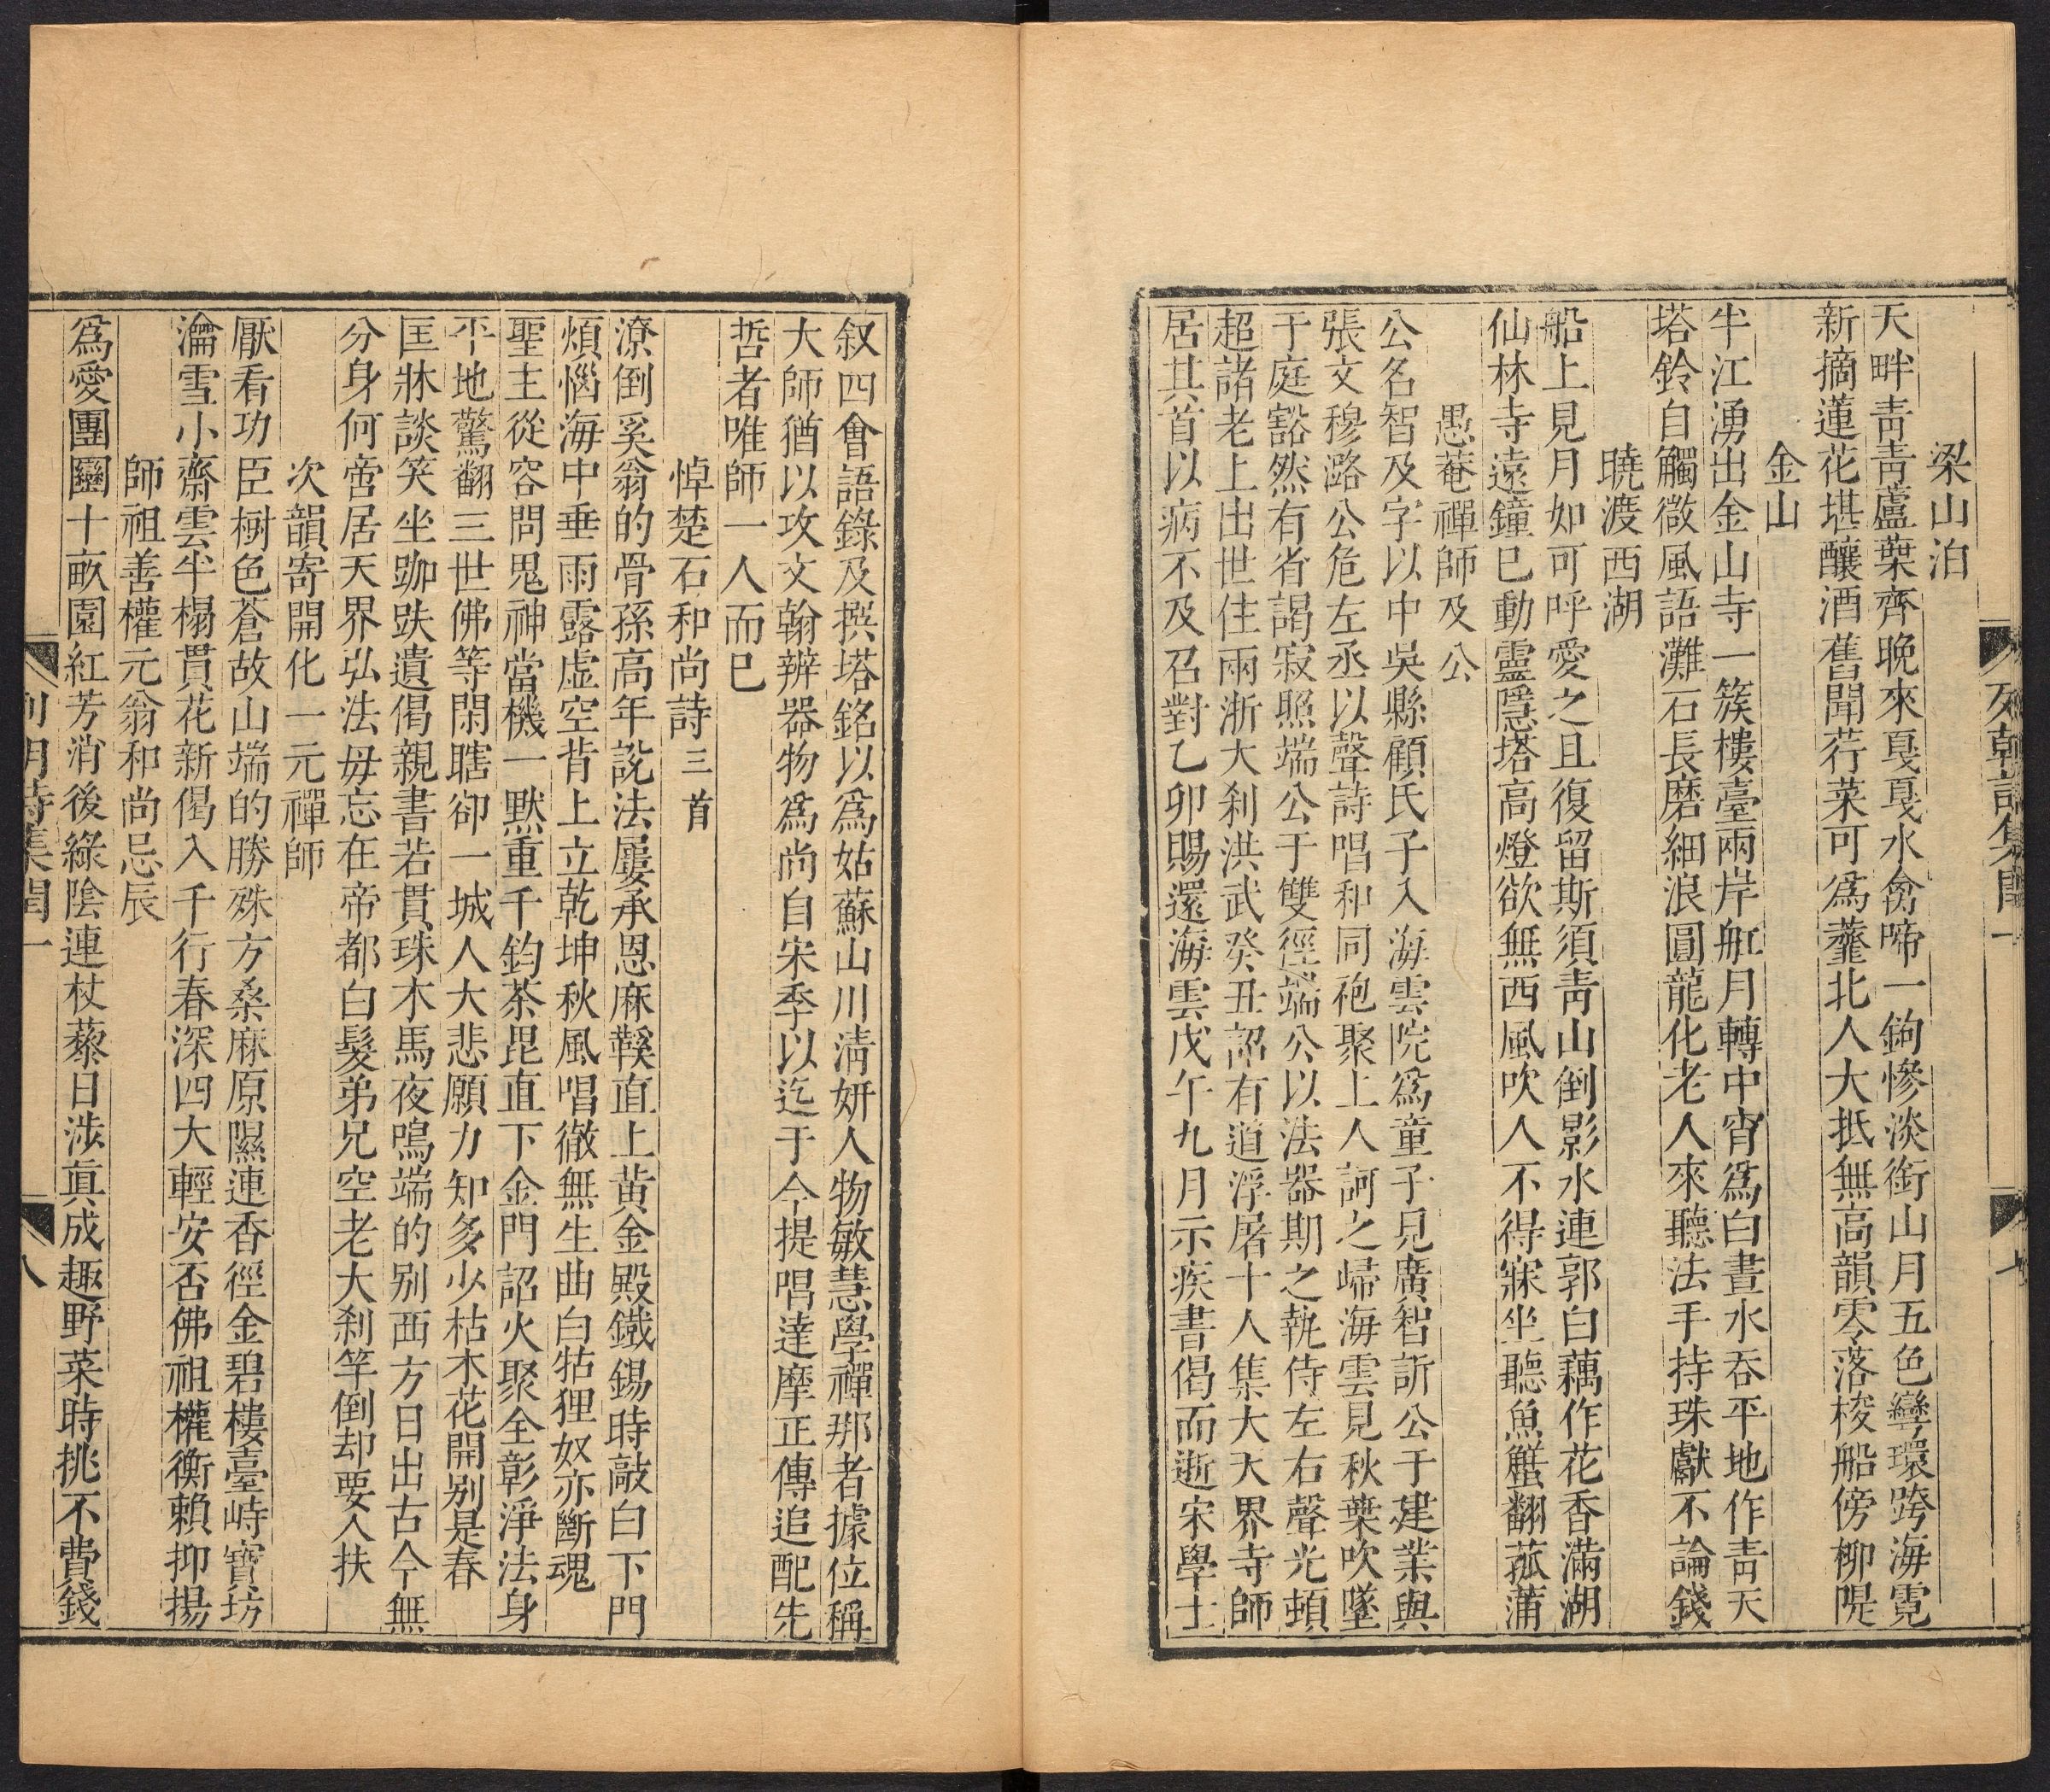 列朝詩集閏一
七
梁山泊
天畔青青蘆葉齊晚來戛戛水禽啼一鉤慘淡銜山月五色彎環跨海霓
新摘蓮花堪釀酒舊聞荇菜可爲虀北人大抵無高韻零落梭船傍柳隄
金山
半江湧出金山寺一簇樓臺兩岸舡月轉中宵爲白晝水吞平地作青天
塔鈴自觸微風語灘石長磨細浪圓龍化老人來聽法手持珠獻不論錢
曉渡西湖
船上見月如可呼愛之且復留斯須青山倒影水連郭白藕作花香滿湖
仙林寺遠鐘已動靈隱塔高燈欲無西風吹人不得寐坐聽魚蠏翻菰蒲
愚菴禪師及公
公名智及字以中吳縣顧氏子入海雲院爲童子見廣智訢公于建業與
張文穆潞公危左丞以聲詩唱和同袍聚上人訶之歸海雲見秋葉吹墜
于庭豁然有省謁寂照端公于雙徑端公以法器期之執侍左右聲光頓
超諸老上出世住兩浙大刹洪武癸丑詔有道浮屠十人集大天界寺師
居其首以病不及召對乙卯賜還海雲戊午九月示疾書偈而逝宋學士
叙四會語錄及撰塔銘以爲姑蘇山川淸妍人物敏慧學禪那者據位稱
大師猶以攻文翰辨器物爲尚自宋季以迄于今提唱達摩正傳追配先
哲者唯師一人而已
悼楚石和尚詩三首
潦倒奚翁的骨孫高年說法屢承恩麻鞵直上黃金殿鐵錫時敲白下門
煩惱海中垂雨露虚空背上立乾坤秋風唱徹無生曲白牯狸奴亦斷魂
聖主從容問鬼神當機一默重千鈞荼毘直下金門詔火聚全彰淨法身
平地驚翻三世佛等閑瞎卻一城人大悲願力知多少枯木花開别是春
匡牀談笑坐跏趺遺偈親書若貫珠木馬夜鳴端的别西方日出古今無
分身何啻居天界弘法毋忘在帝都白髮弟兄空老大刹竿倒却要人扶
次韻寄開化一元禪師
厭看功臣樹色蒼故山端的勝殊方桑麻原隰連香徑金碧樓臺峙寶坊
瀹雪小齋雲半榻貫花新偈入千行春深四大輕安否佛祖權衡賴抑揚
師祖善權元翁和尚忌辰
爲愛團圞十畝園紅芳消後綠陰連杖藜日涉真成趣野菜時挑不費錢
列朝詩集閏一
八